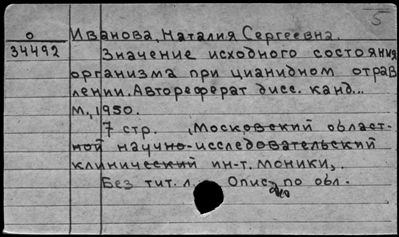 5
О Иванова, Наталия Сергеевна.
34492 Значение исходного состояния
организма при цианидном отрав
лении. Автореферат дисс. канд...
М., 1950.
7 стр. , Московский област-
ной научно-исследовательский
клинический ин-т. моники,.
Без тит. л. Опис. по обл.